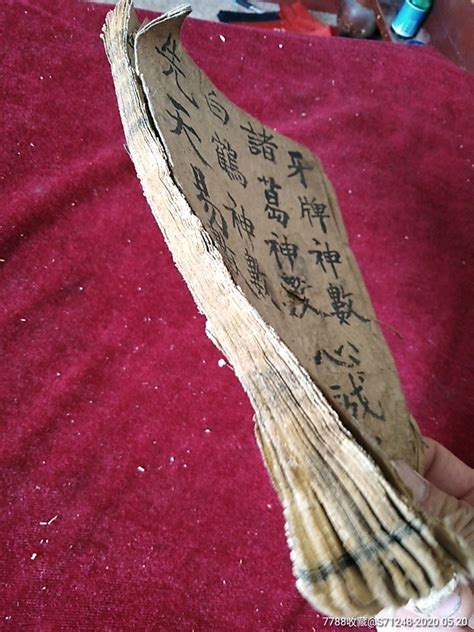 牙牌神數
心誠
諸葛神數
白鶴神數
先天易
7788收藏@S71248-2020 05 20